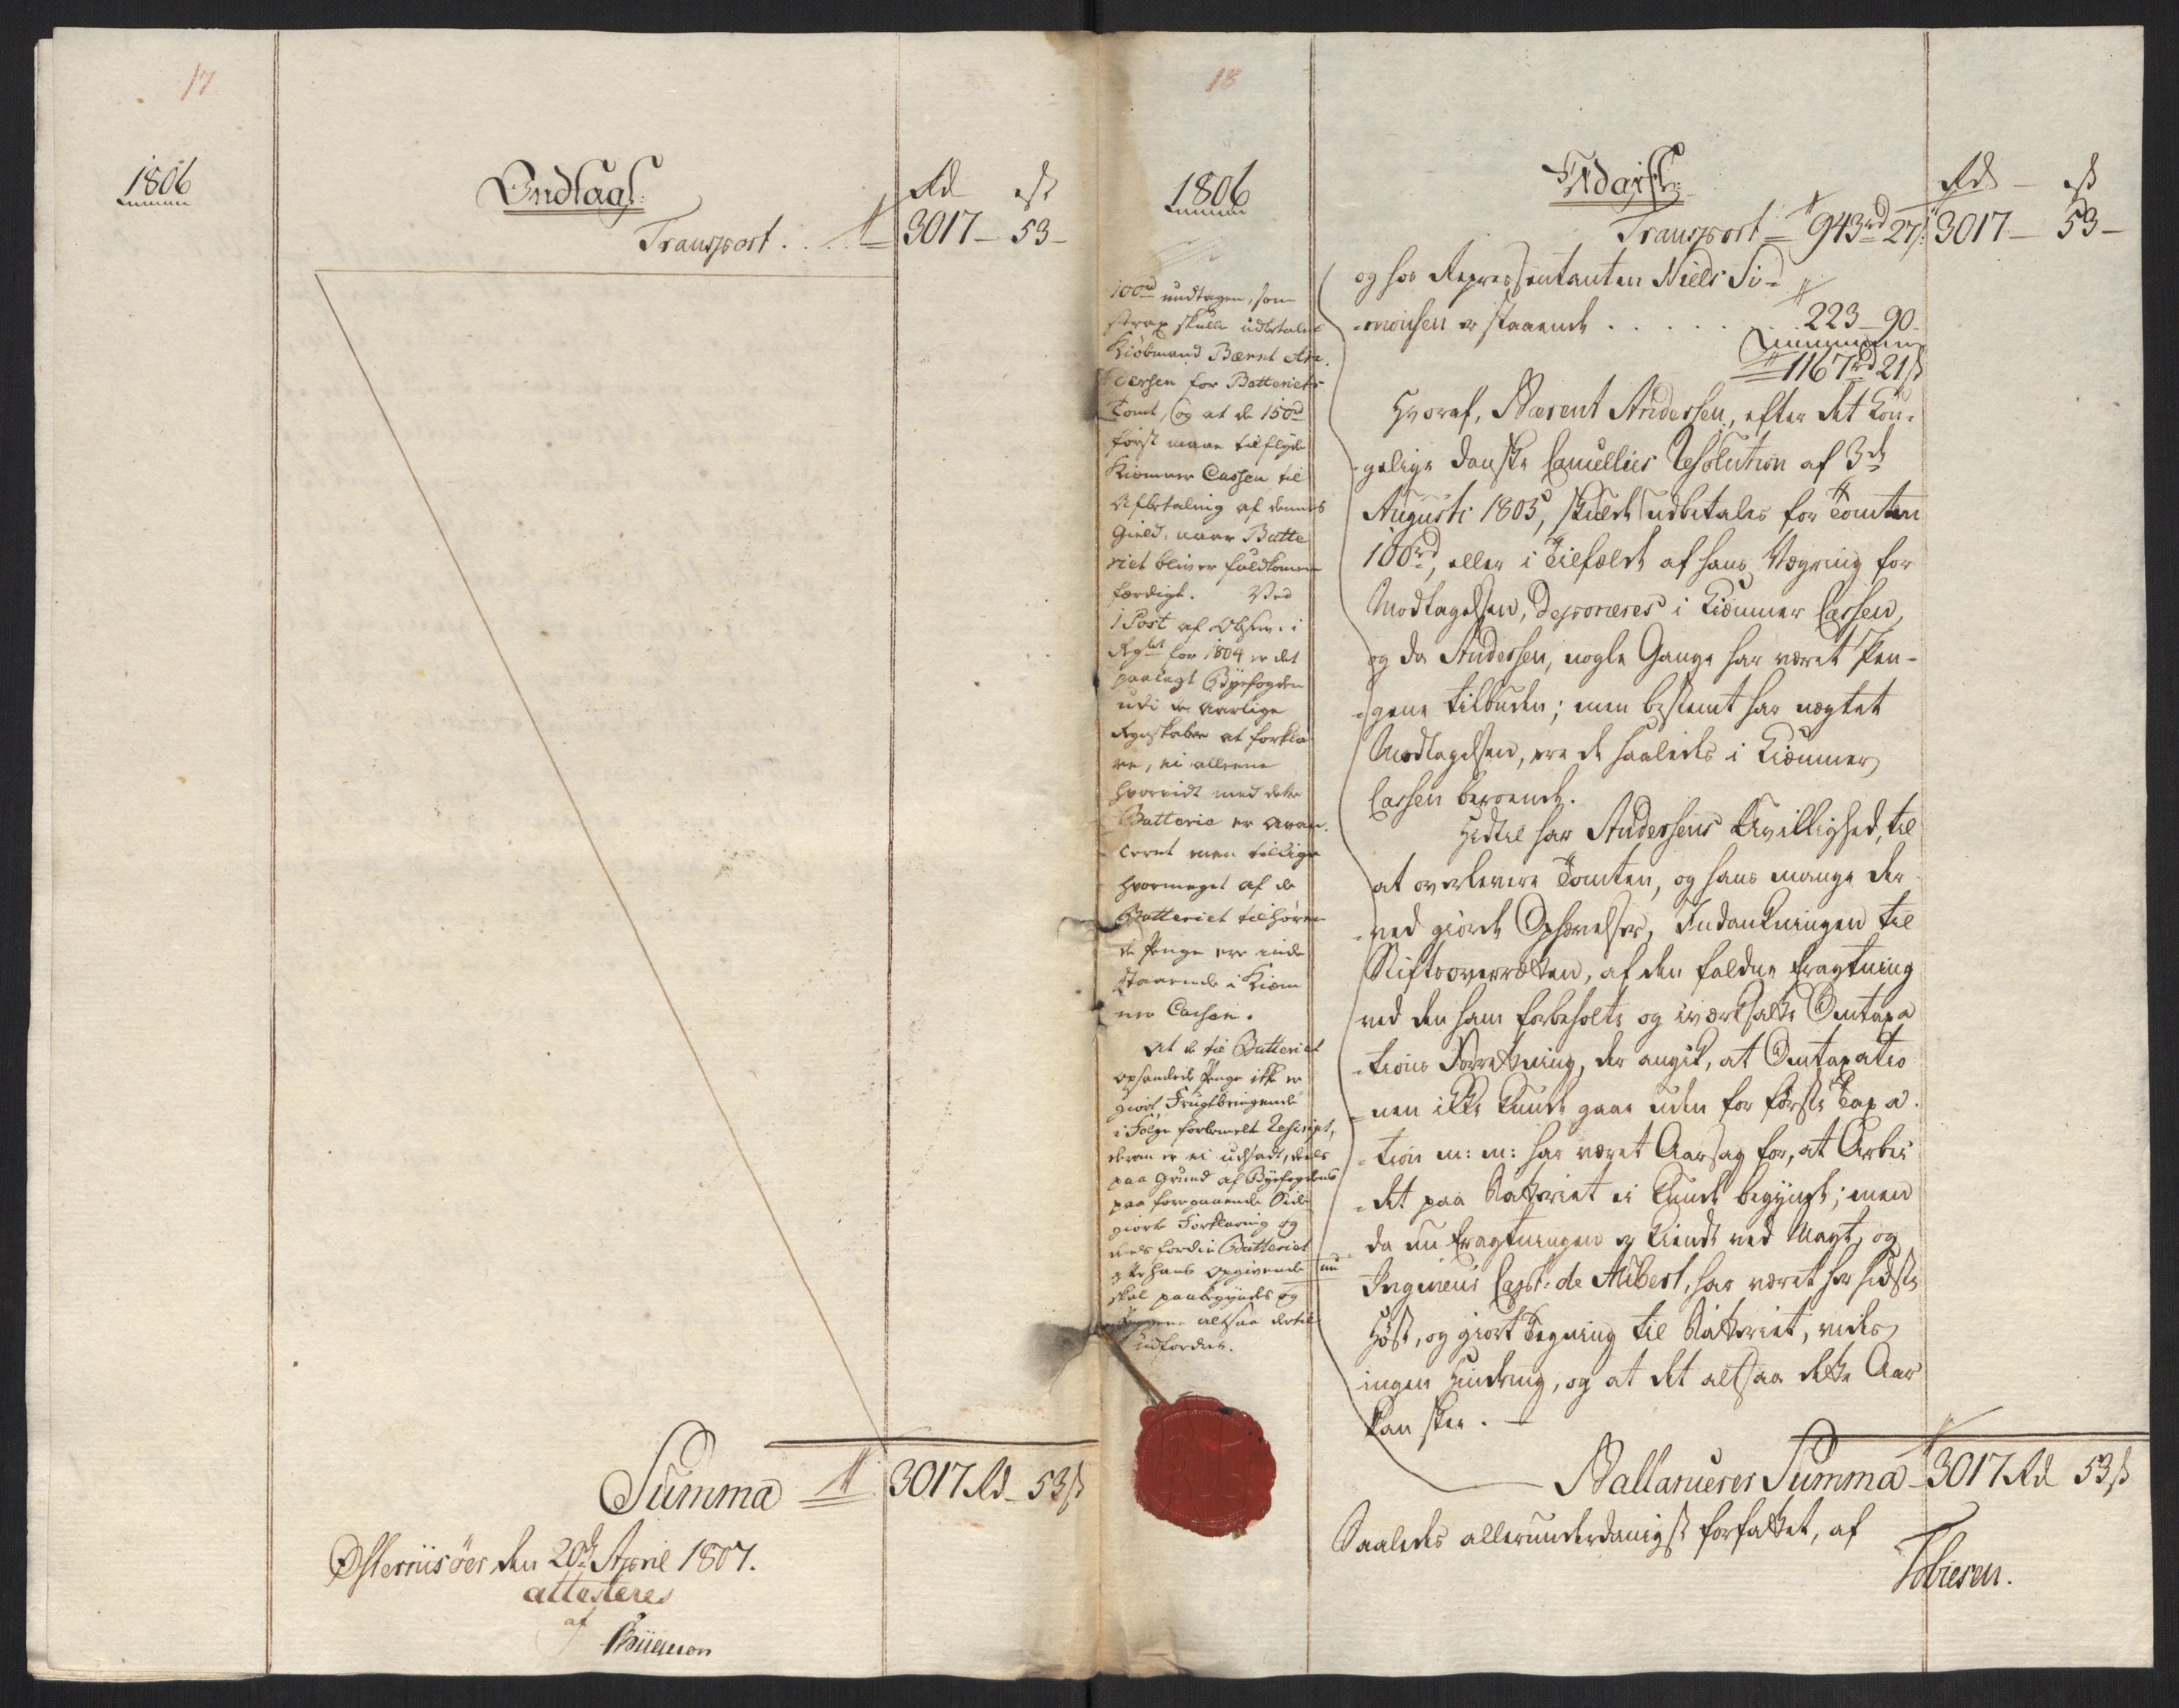 17
1806
Indtægt:
Rd ß
Transport . . . 3017 - 53 -
Summa 3017 Rd - 53 ß
Østerriisøer den 20de April 1807.
attesteres
af
18
1806
100rd undtagen, som
strax skulle udbetales
Kiöbmand Bærent An-
dersen for Batteriets
Tomt, og at de 150rd
først maae tilflyde
Kiemner Cassen til
Afbetaling af dennes
Gield, naar Batte
riet bliver fuldkommen
færdigt. Ved
1 Post af Observ. i
Rgsbt for 1804 er det
paalagt Byefogden
udi de aarlige
Regnskaber at forkla
re, ei alleene
hvorvidt med dette
Batterie er avan-
ceret men tillige
hvormeget af de
Batteriet tilhøren
de Penge ere inde
staaende i Kiem
ner Cassen.
At de til Batteriet
opsamlede Penge ikke er
giort Frugtbringende
i Følge forbemelte Rescript,
derom er ei udsadt, deels
paa Grund af Byefogdens
paa foregaaende Side
giorte Forklaring og
deels fordi Batteriet
efter hans Opgivende nu
skal paabegyndes og
Pengene altsaa dertil
udfordres.
Udgift:
Rd - ß
Transport = 943rd 27ß 3017 - 53 -
og hos Repræsentanten Niels Si-
-monsen er staaende . . . . . 223 - 90 -
1167rd 21ß
Hvoraf, Bærent Andersen, efter det Kon-
-gelige danske Cancellies Resolution af 3de
Augusti 1805, skulde udbetales for Tomten
100rd, eller i Tilfælde af hans Vægring for
Modtagelsen, deponeres i Kiæmner Cassen,
og da Andersen, nogle Gange har været Pen-
-gene tilbuden; men bestemt har nægtet
Modtagelsen, ere de saaledes i Kiæmner
Cassen beroende.
Hidtil har Andersens Uvillighed, til
at overlevere Tomten, og hans mange der
-ved giorte Ophævelser, Indankningen til
Stiftsoverretten, af den faldne Eragtning
ved den ham forbeholte og iværksatte Omtaxa
-tions Forretning, der angik, at Omtaxatio
-nen ikke kunde gaae uden for første Taxa-
-tion m: m: har været Aarsag for, at Arbei
-det paa Batteriet ei kunde begynde; men
da nu Eragtningen er kiendt ved Magt, og
Ingenieur Capt: de Aubert, har været her sidste
Høst, og giort Tegning til Batteriet, vides
ingen Hindring, og at det altsaa dette Aar
kan skee. -
Ballancerer Summa 3017 Rd 53 ß
Saaledes allerunderdanigst forfattet, af
Tobiesen.